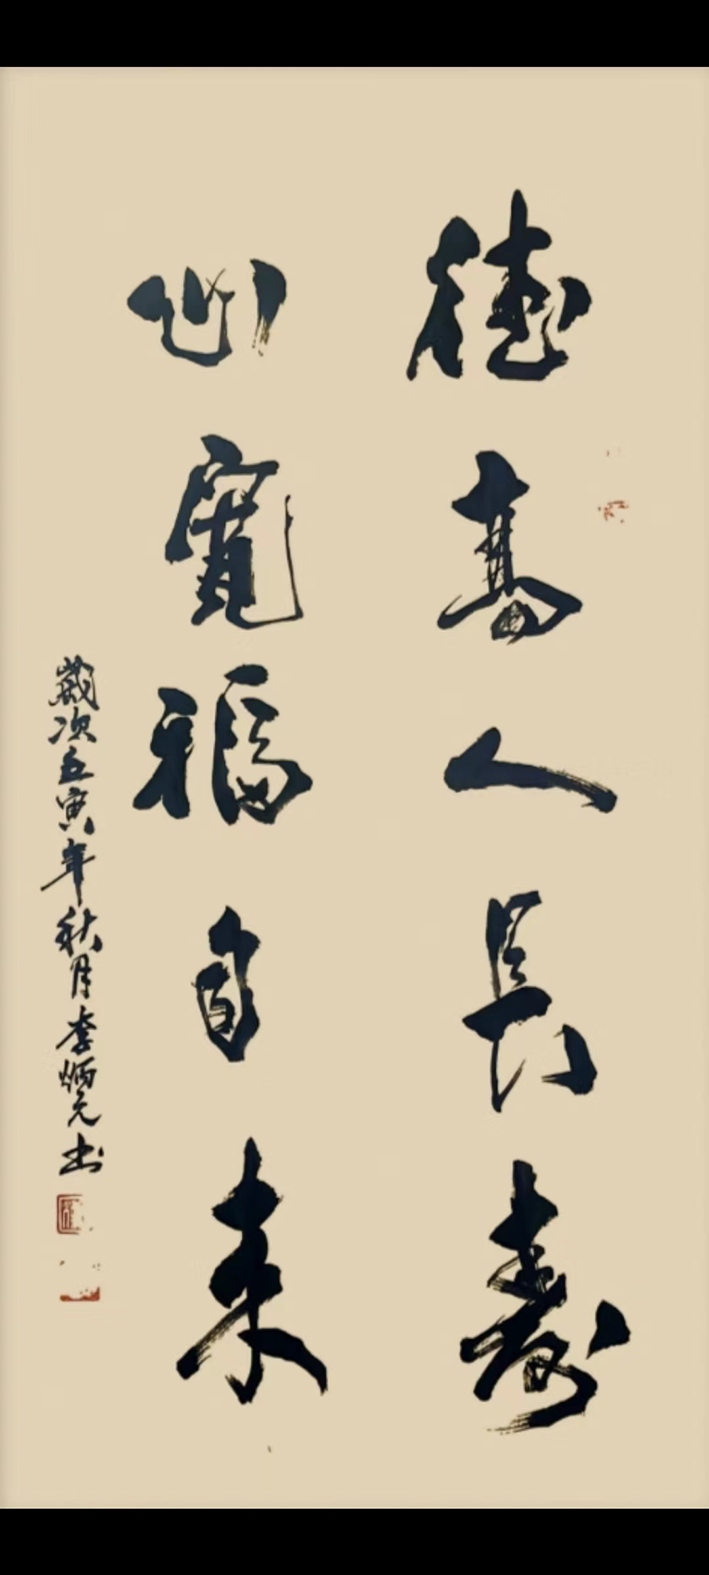 德高人長壽
心寬福自來
歲次壬寅年秋月李炳元书